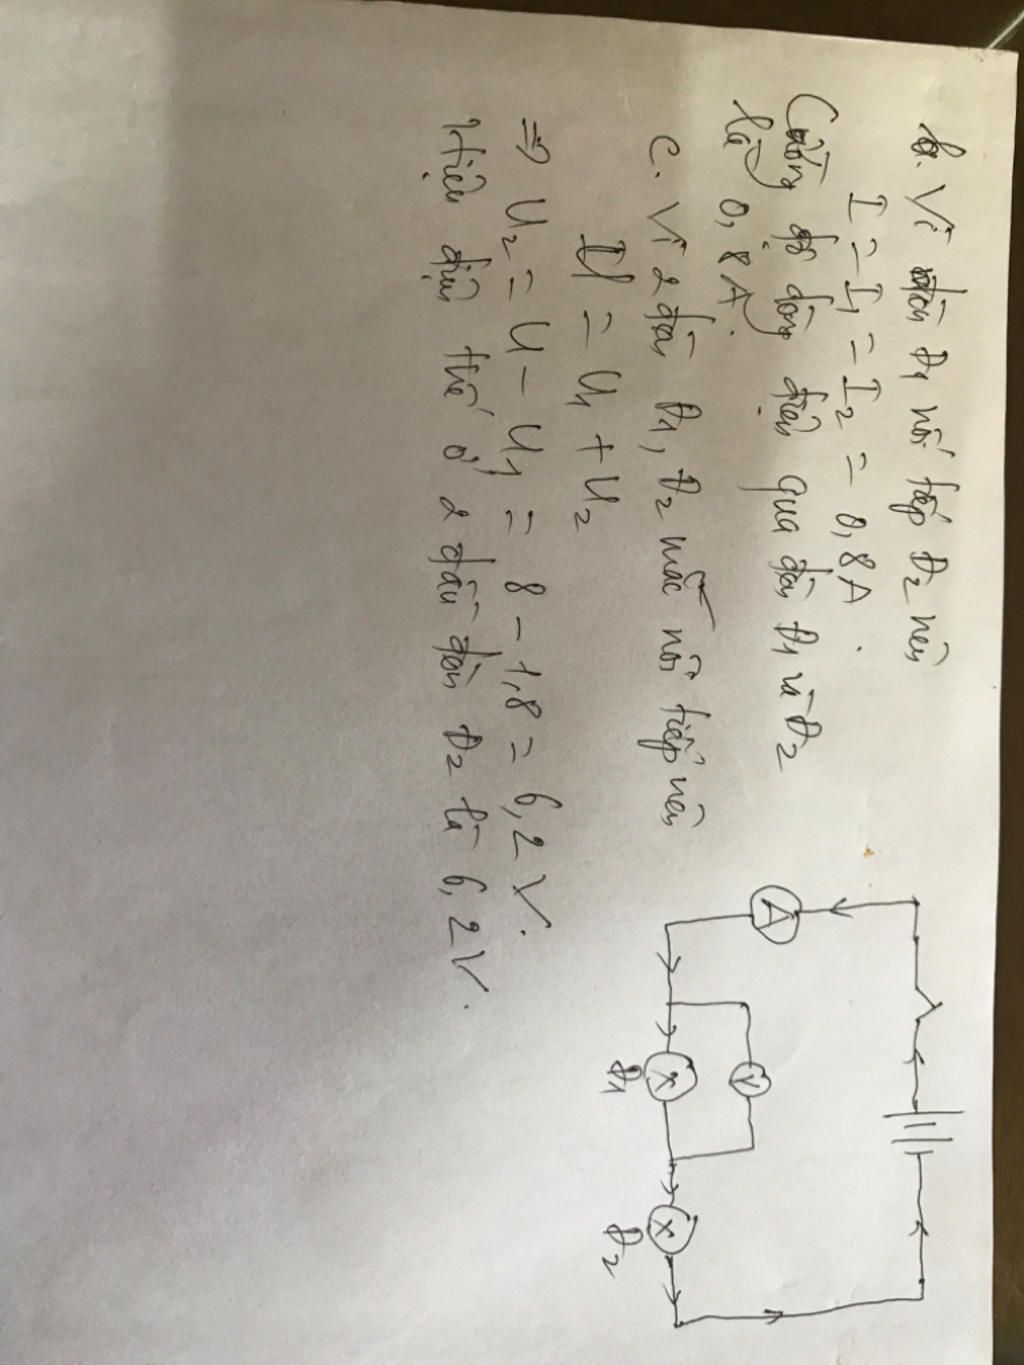 b. Vì đèn Đ1 nối tiếp Đ2 nên
I = I1 = I2 = 0,8A.
Cường độ dòng điện qua đèn Đ1 và Đ2
là 0,8A.
c. Vì 2 đèn Đ1, Đ2 mắc nối tiếp nên
U = U1 + U2
⇒ U2 = U - U1 = 8 - 1,8 = 6,2V.
Hiệu điện thế ở 2 đầu đèn Đ2 là 6,2V.
A
V
X
X
Đ1
Đ2